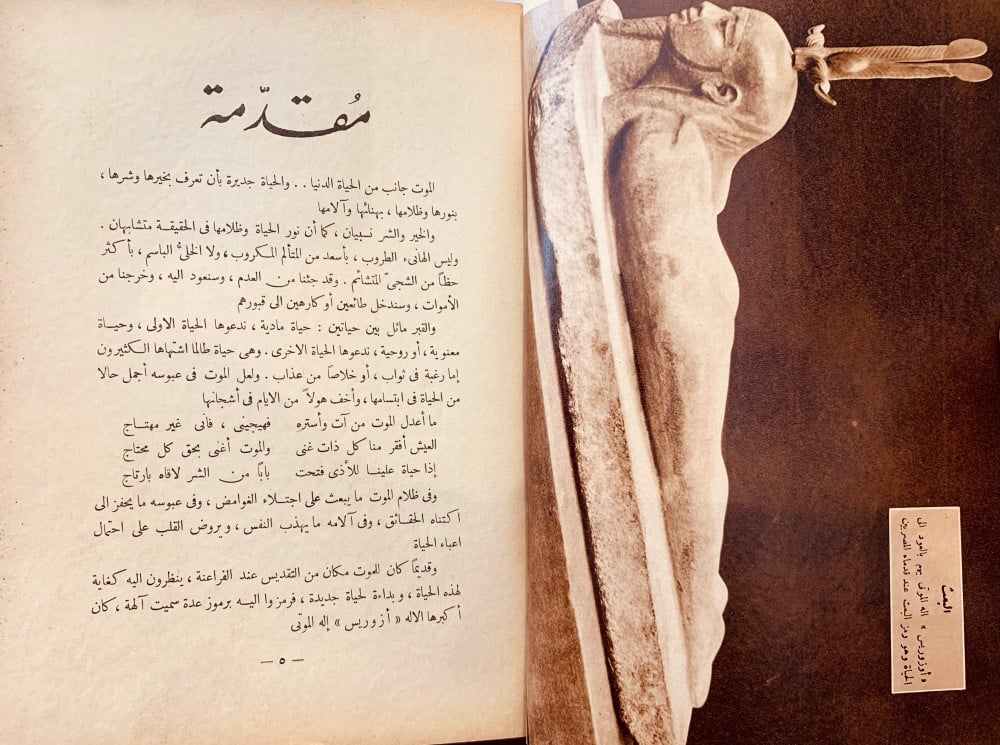 مُقدّمة
الموت جانب من الحياة الدنيا . . والحياة جديرة بأن تعرف بخيرها وشرها ،
بنورها وظلامها ، بهنائها وآلامها
والخير والشر نسبيان ، كما أن نور الحياة وظلامها فى الحقيقة متشابهان .
وليس الهانىء الطروب ، بأسعد من المتألم المكروب ، ولا الخلىُّ الباسم ، بأكثر
حظاً من الشجىّ المتشائم . وقد جئنا من العدم ، وسنعود اليه ، وخرجنا من
الأموات ، وسندخل طائعين أو كارهين الى قبورهم
والقبر ماثل بين حياتين : حياة مادية ، ندعوها الحياة الاولى ، وحياة
معنوية ، أو روحية ، ندعوها الحياة الاخرى . وهى حياة طالما اشتهاها الكثيرون
إما رغبة فى ثواب ، أو خلاصاً من عذاب . ولعل الموت فى عبوسه أجمل حالا
من الحياة فى ابتسامها ، وأخف هولاً من الايام فى أشجانها
ما أعدل الموت من آت وأستره فهيجينى ، فانى غير مهتاج
العيش أفقر مناكل ذات غنى والموت أغنى بحق كل محتاج
إذا حياة علينا للأذى فتحت باباً من الشر لاقاه بارتاج
وفى ظلام الموت ما يبعث على اجتلاء الغوامض ، وفى عبوسه ما يحفز الى
اكتناه الحقائق ، وفى آلامه ما يهذب النفس ، ويروض القلب على احتمال
اعباء الحياة
وقديماً كان للموت مكان من التقديس عند الفراعنة ، ينظرون اليه كغاية
لهذه الحياة ، وبداءة لحياة جديدة ، فرمزوا اليه برموز عدة سميت آلهة ، كان
أكبرها الاله « أزوريس » إله الموتى
— ٥ —
البعث
« أوزوريس » اله الموتى يوم بالعود الى
الحياة وهو رمز البعث عند قدماء المصريين